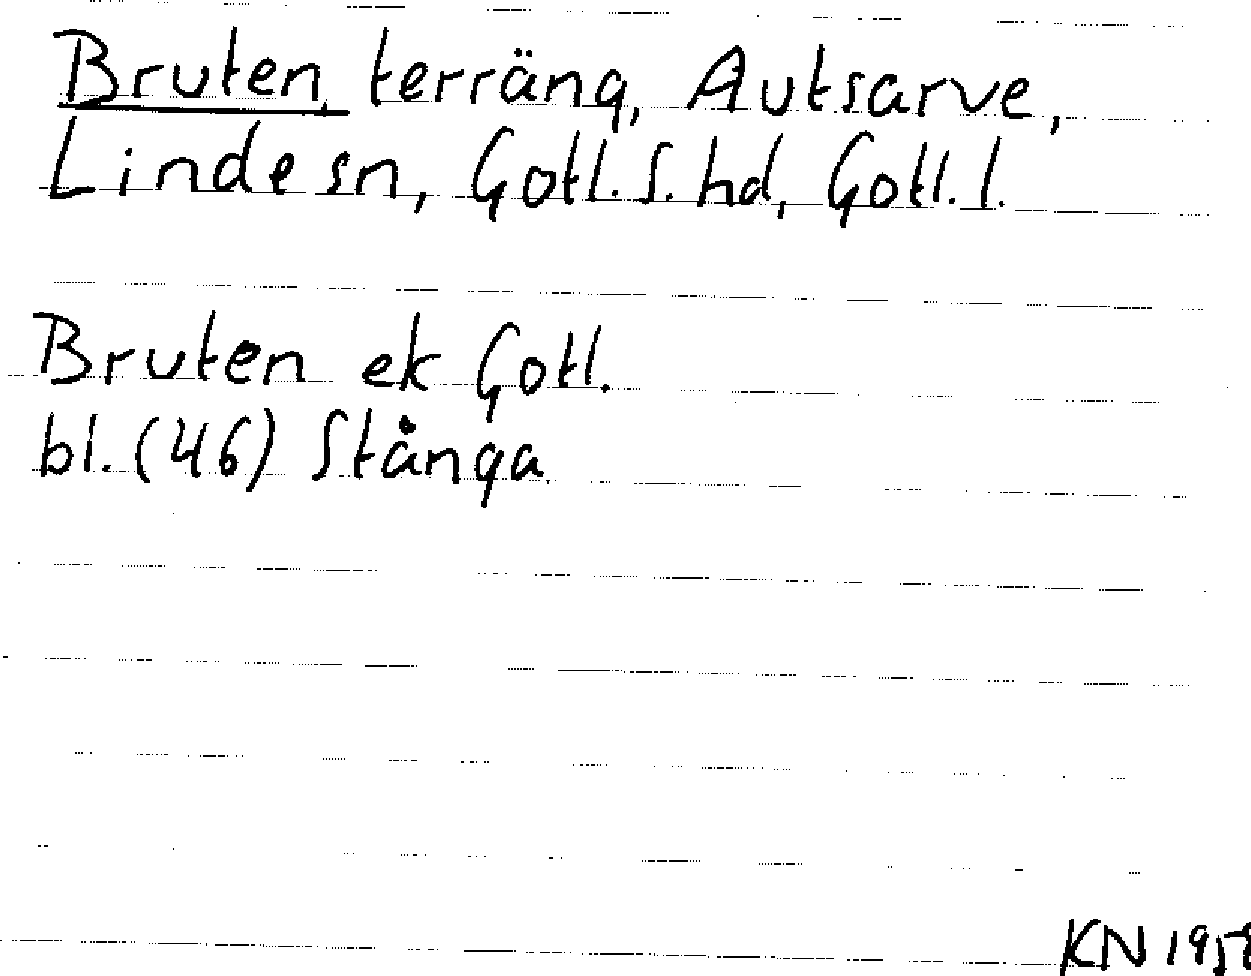 Bruten, terräng, Autsarve,
Linde sn, Gotl. S. hd, Gotl. l.
Bruten ek Gotl.
bl. (46) Stånga
KN